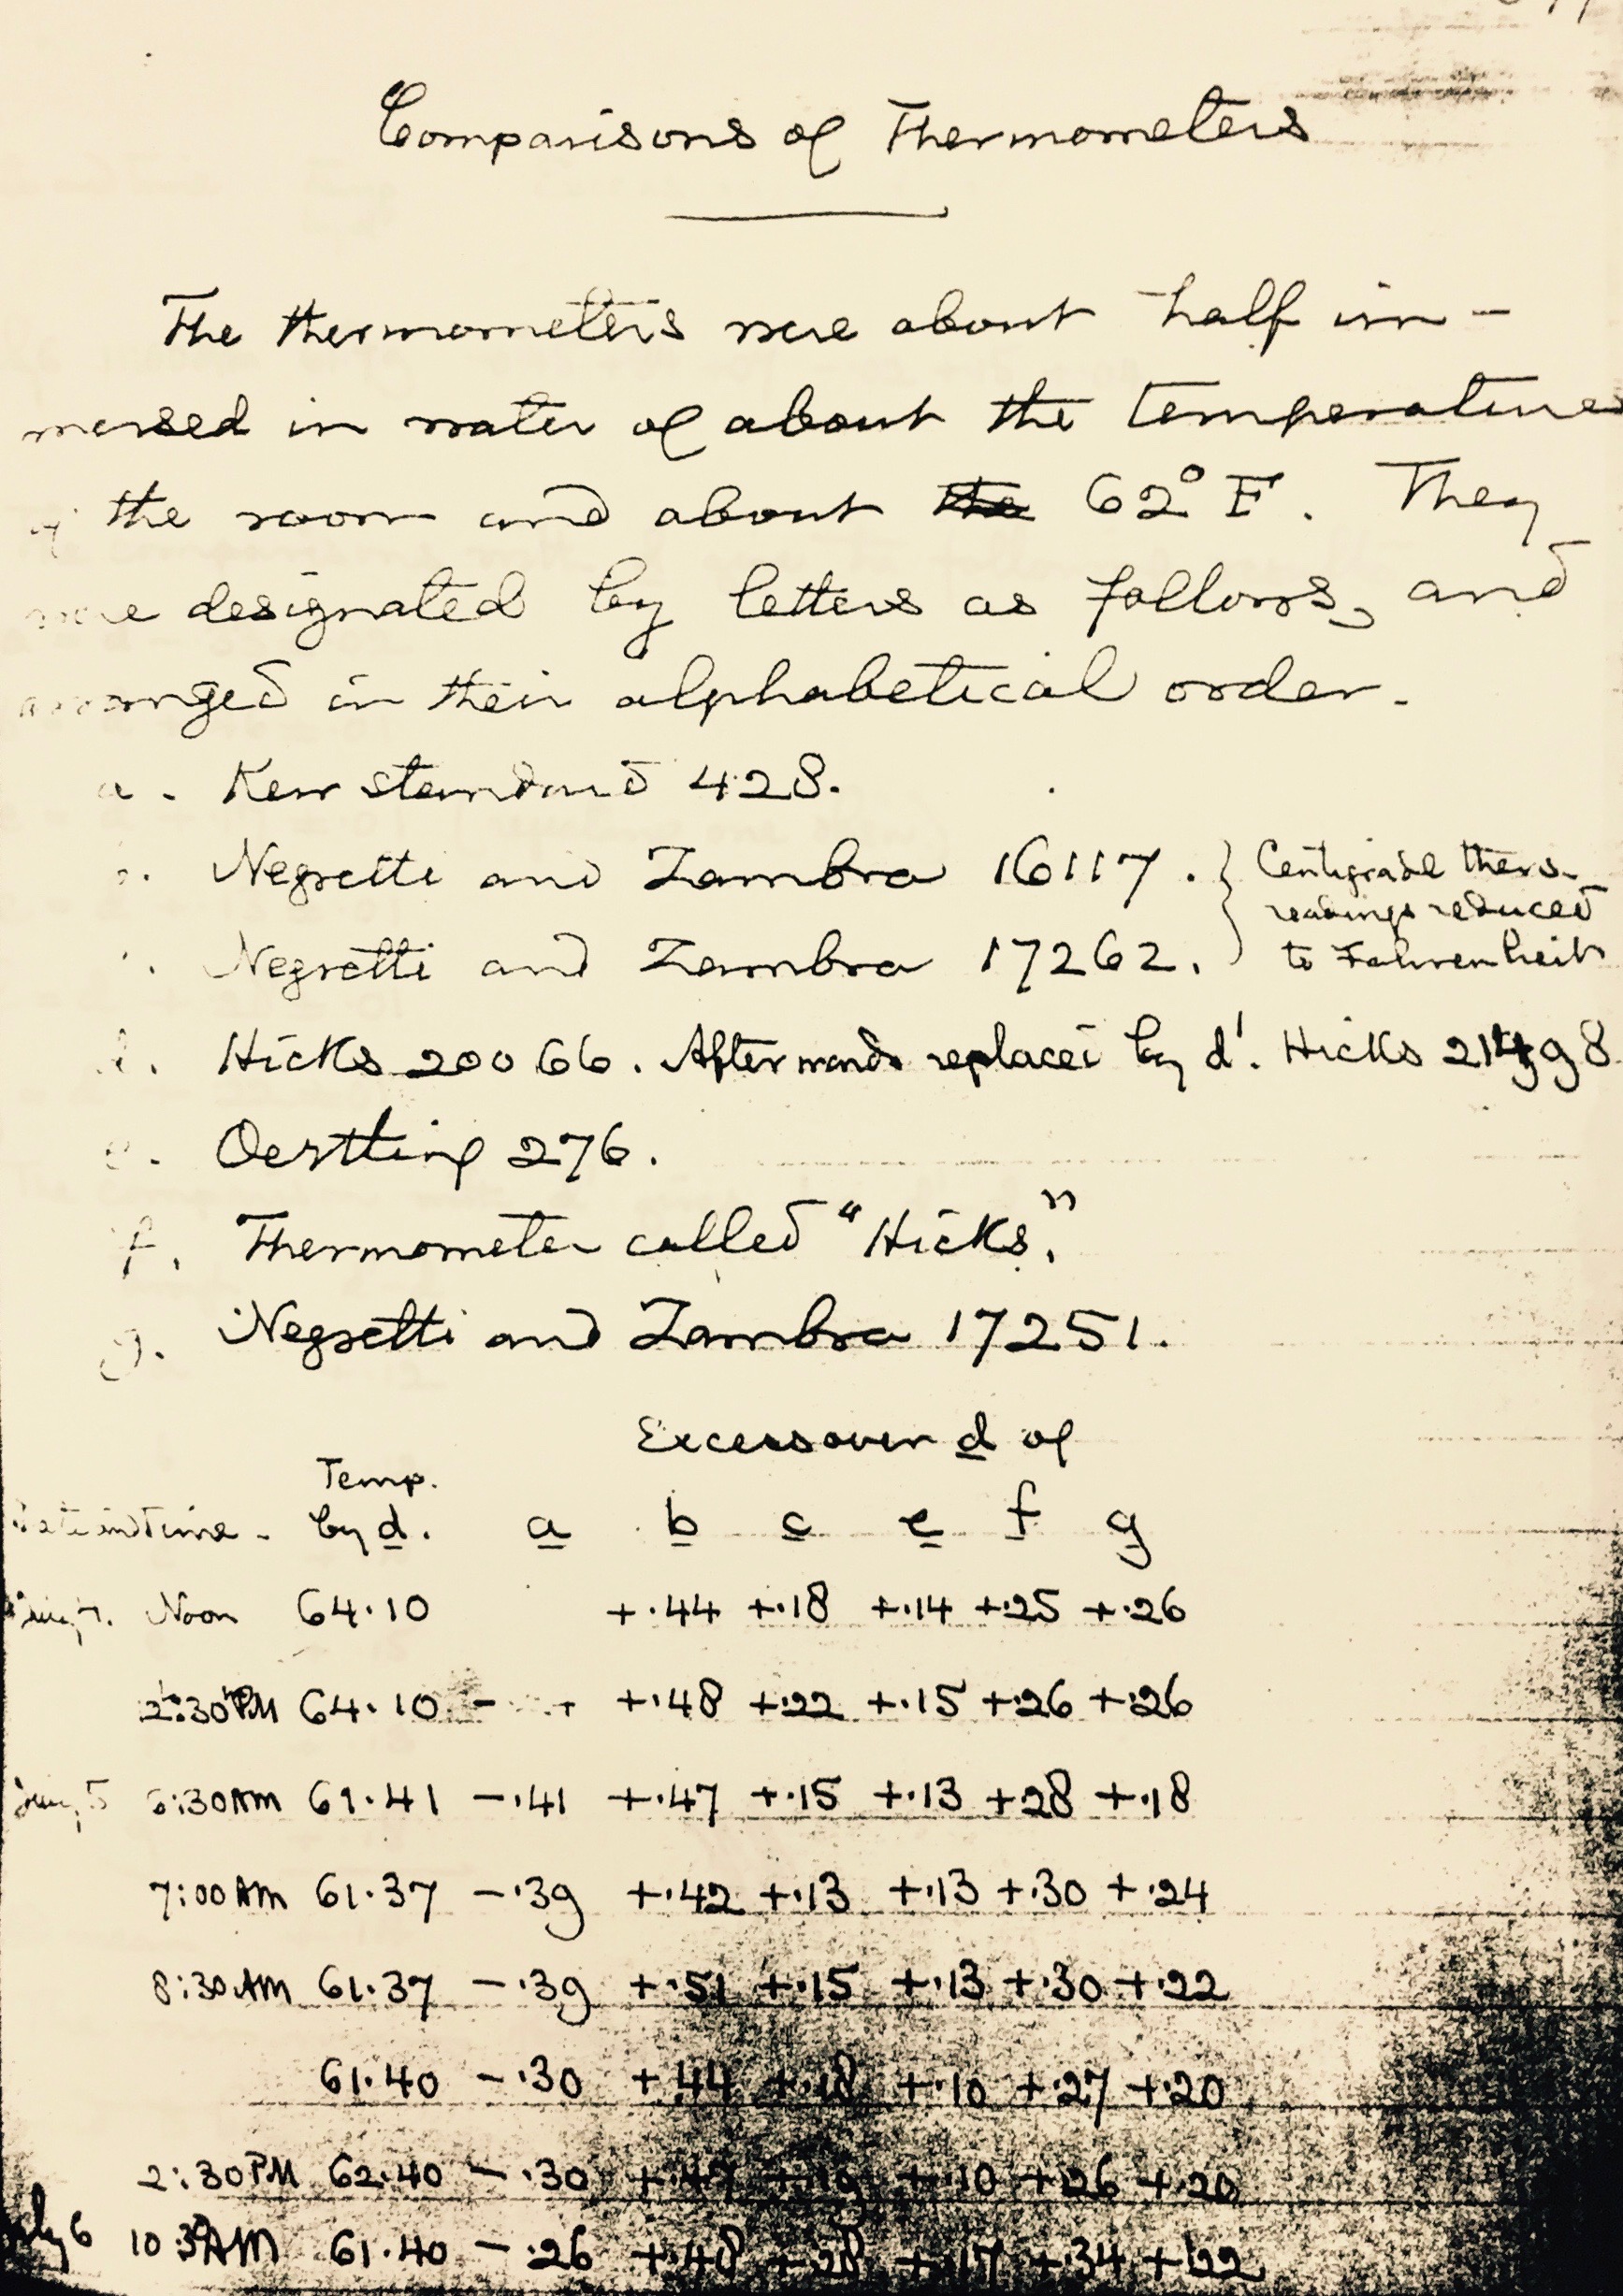 Comparisons of Thermometers
The thermometers were about half im-
mersed in water of about the temperature
of the room and about the 62° F. They
were designated by letters as follows, and
arranged in their alphabetical order.
a. Kew standard 428.
Negretti and Zambra 16117. } Centigrade thers.
readings reduced
Negretti and Zambra 17262. to Fahrenheit
d. Hicks 20066. Afterwards replaced by d'. Hicks
e. Oertling 276.
f. Thermometer called "Hicks."
g. Negretti and Zambra 17251.
Excess over d of
Temp.
Date and Time. by d. a b c e f g
Noon 64.10 +.44 +.18 +.14 +.25 +.26
2:30 PM 64.10 - +.48 +.22 +.15 +.26 +.26
July 5 6:30 AM 61.41 -.41 +.47 +.15 +.13 +.28 +.18
7:00 AM 61.37 -.39 +.42 +.13 +.13 +.30 +.24
8:30 AM 61.37 -.39 +.51 +.15 +.13 +.30 +.22
61.40 -.30 +.44 +.18 +.10 +.27 +.20
2:30 PM 62.40 -.30 +.47 +.19 +.10 +.26 +.20
July 6 10:30 AM 61.40 -.26 +.48 +.28 +.17 +.34 +.22